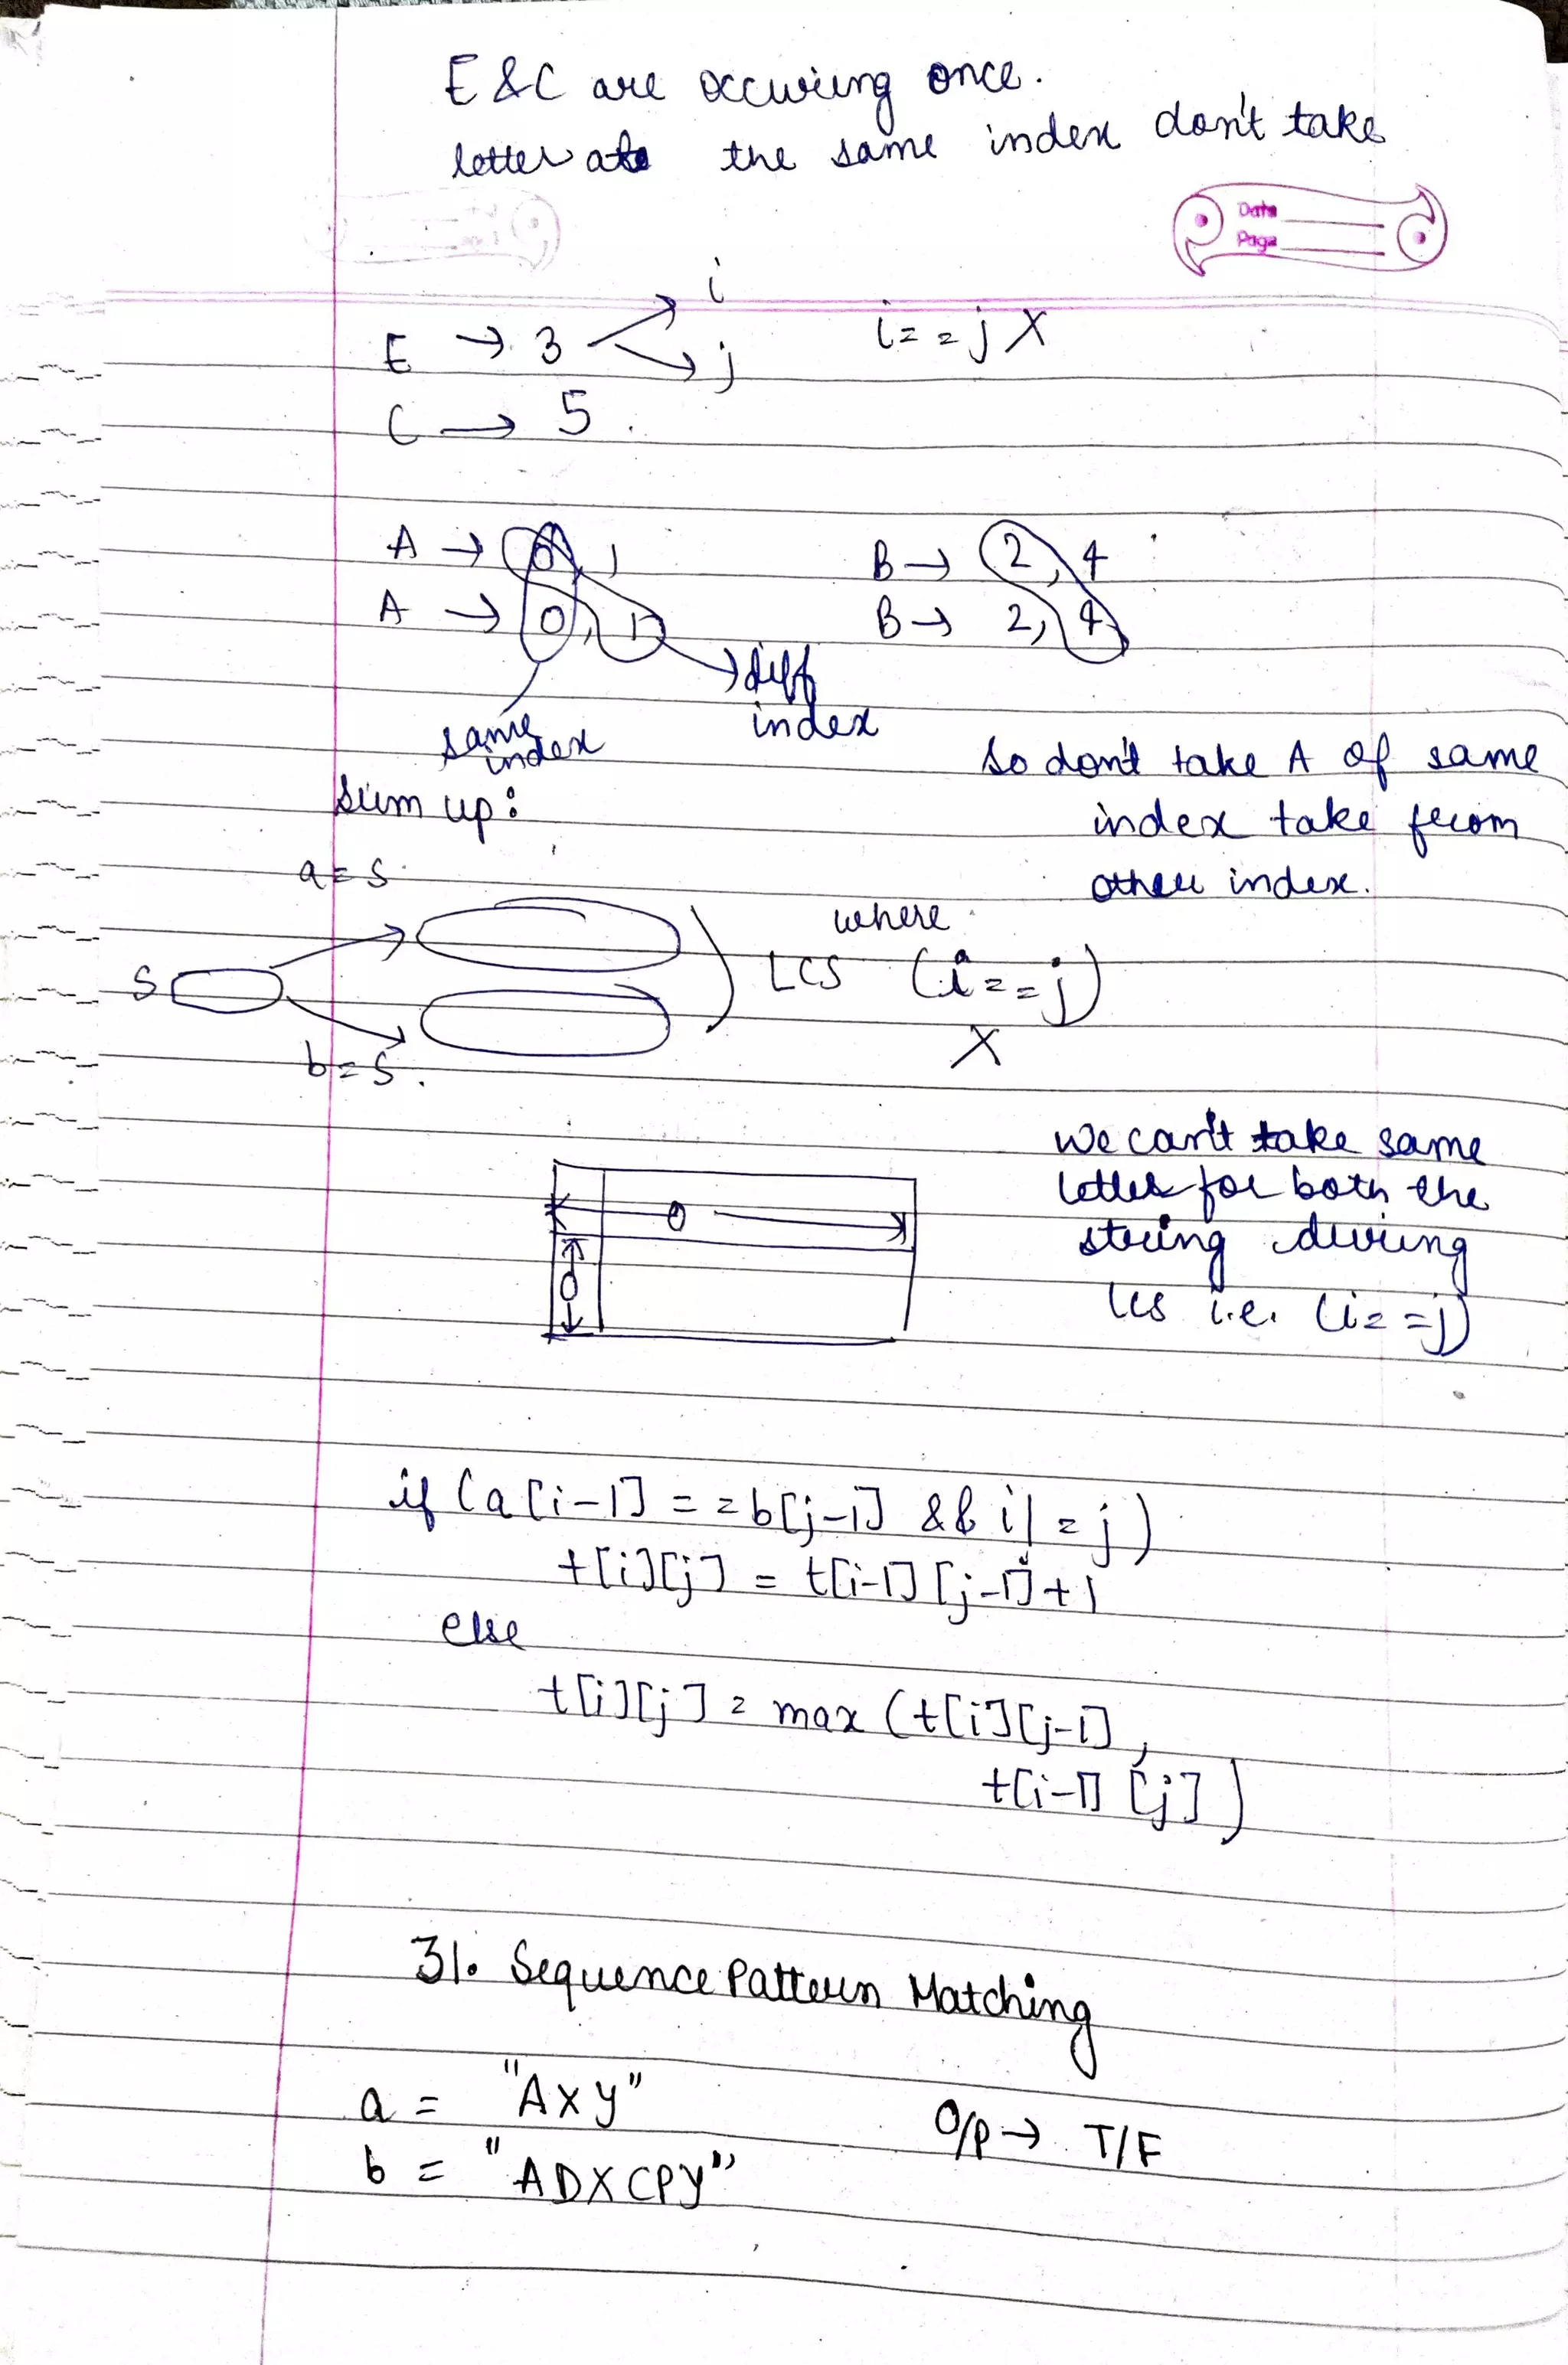 E & C are occuring once.
letter at the same index don't take
Date
Page
E → 3 i j i==j X
C → 5.
A → 0, 1 B → 2, 4
A → 0, 1 B → 2, 4
same index
diff index
So don't take A of same
index take from
other index.
Sum up:
a = s
S
b = s.
where
LCS (i==j)
X
0
0
we can't take same
letter for both the
string during
lcs i.e. (i==j)
if (a[i-1] == b[j-1] && i != j)
t[i][j] = t[i-1][j-1]+1
else
t[i][j] = max (t[i][j-1],
t[i-1][j])
31. Sequence Pattern Matching
a = "AXY"
O/P → T/F
b = "ADXCPY"